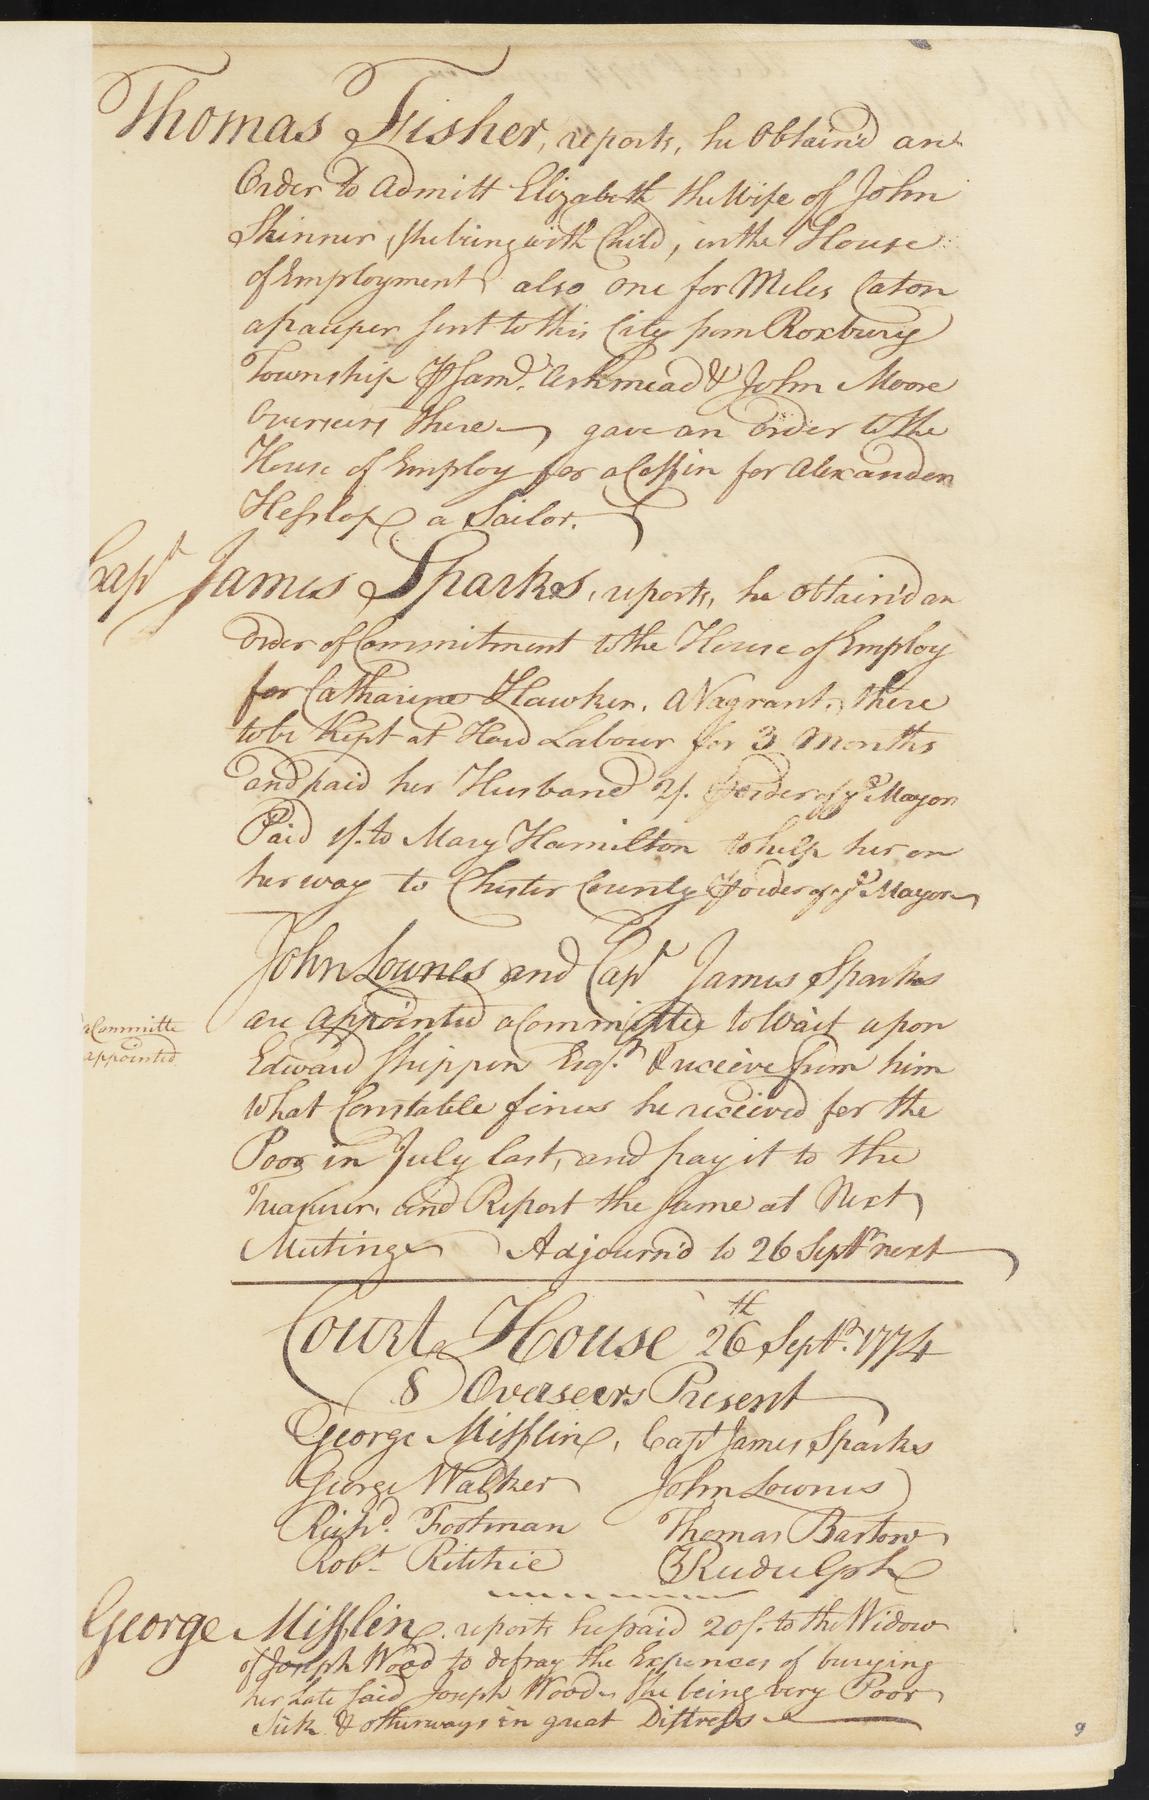 Thomas Fisher, reports, he Obtain'd an
Order to Admitt Elizabeth the Wife of John
Skinner, she being with Child, in the House
of Employment also one for Miles Caton
a pauper sent to this City from Roxbury
Township ⅌ Samˡ. Ashmead & John Moore
Overseers there gave an order to the
House of Employ for a Coffin for Alexander
Heslop a Sailor.
Capᵗ James Sparks, reports, he obtain'd an
order of Commitment to the House of Employ
for Catharine Hawker, a Vagrant, there
to be Kept at Hard Labour for 3 Months
and paid her Husband 2/. ⅌ order of yᵉ Mayor
Paid 1/. to Mary Hamilton to help her on
her way to Chester County ⅌ order of yᵉ Mayor
John Lownes and Capᵗ James Sparks
are appointed a Committee to Wait upon
a Committe
appointed
Edward Shippen Esqʳ. & receive from him
what Constable fines he received for the
Poor in July last, and pay it to the
Treasurer, and Report the same at Next
Meeting Adjourn'd to 26 Septʳ next
Court House 26ᵗʰ Septʳ. 1774
8 Overseers Present
George Mifflin, Capᵗ James Sparks
George Walker John Lownes
Richᵈ. Footman Thomas Bartow
Robᵗ Ritchie Rudulph
George Mifflin reports he paid 20/. to the Widow
of Joseph Wood to defray the Expences of burying
her Late said Joseph Wood, She being very Poor
Sick & otherways in great Distress
9